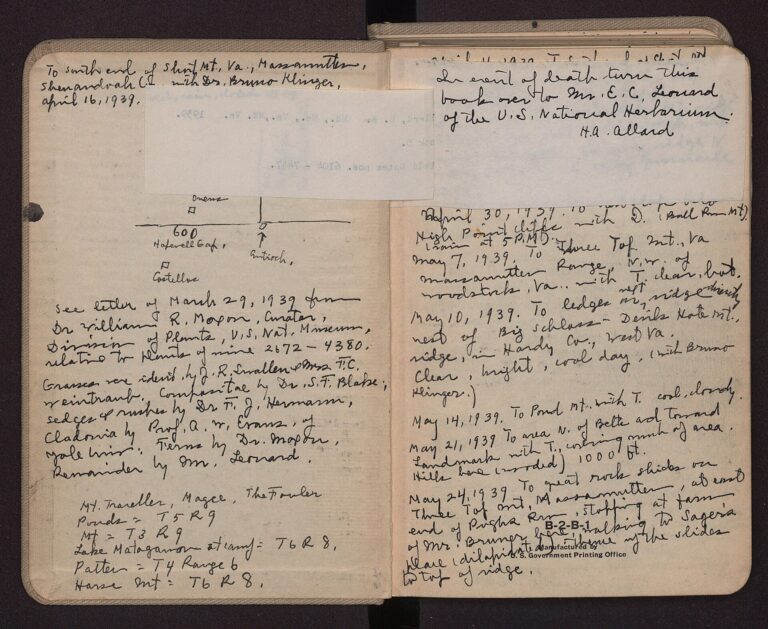 To south end of Short Mt, Va., Massanutten,
Shenandoah Co. with Dr. Bruno Klinger,
April 16, 1939.
Owens
600
Hopewell Gap,
Antioch,
Costellus
See letter of March 29, 1939 from
Dr William R. Maxon, Curator,
Division of Plants, U.S. Nat. Museum,
relative to plants of mine 2672 - 4380.
Grasses were ident. by J. R. Swallen & Mrs F.C.
Weintraub, Compositae by Dr. S.F. Blake;
sedges & rushes by Dr F. J. Hermann,
Cladonia by Prof. A. W. Evans, of
Yale Univ. Ferns by Dr. Maxon.
Remainder by Mr. Leonard.
Mt. Traveller, Magee, The Fowler
Ponds = T5 R9
Mt = T3 R9
Lake Matagamon at camp = T6 R8,
Patten = T4 Range 6
Horse Mt = T6 R8.
In event of death turn this
book over to Mr. E. C. Leonard
of the U.S. National Herbarium.
H.A. Allard
April 30, 1939. To
High Point cliffs with D. (Bull Run Mt)
(rain at 5 P.M.)
May 7, 1939. To Three Top Mt., Va
Massanutten Range, N.W. of
Woodstock, Va. with T. clear, hot.
May 10, 1939. To ledges on ridge
west of Big Schloss - Devils Hole Mt.,
ridge, in Hardy Co., West Va.
Clear, bright, cool day. (with Bruno
Klinger.)
May 14, 1939. To Pond Mt. with T. cool, cloudy.
May 21, 1939 To area N. of Belle and toward
Landmark with T., covering much of area.
Hills here (wooded) 1000 ft.
May 24, 1939. To great rock slides on
Three Top Mt, Massanutten, at east
end of Run, stopping at farm
of Mr. Bruner here, walking to Sager's
place (dilapidated) thence up the slides
to top of ridge.
B-2-B-1
Manufactured by
U. S. Government Printing Office